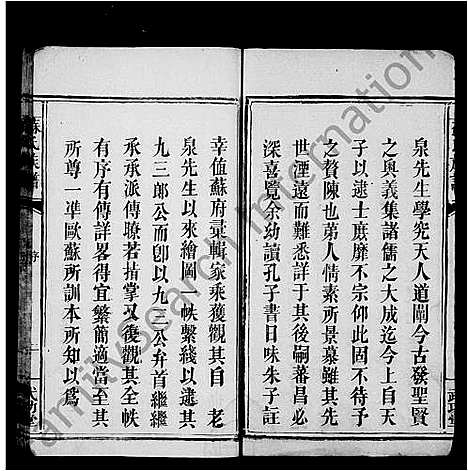 泉先生學究天人道闡今古發聖賢
之奧義集諸儒之大成迄今上自天
子以逮士庶靡不宗仰此固不待予
之贅陳也弟人情素所景慕雖其前
世湮遠而難悉詳于其後嗣蕃昌必
深喜覽余幼讀孔子書日味朱子註
幸值蘇府彙輯家乘獲觀其自 老
泉先生以來繪圖一帙繫綫以逮其
九三郎公而卽以九三公弁首繼繼
承承派傳瞭若指掌又復觀其全帙
有序有傳詳畧得宜繁簡適當至其
所尊一準歐蘇所訓本所知以爲
蘇氏族譜
序
一
武功堂
FamilySearch International